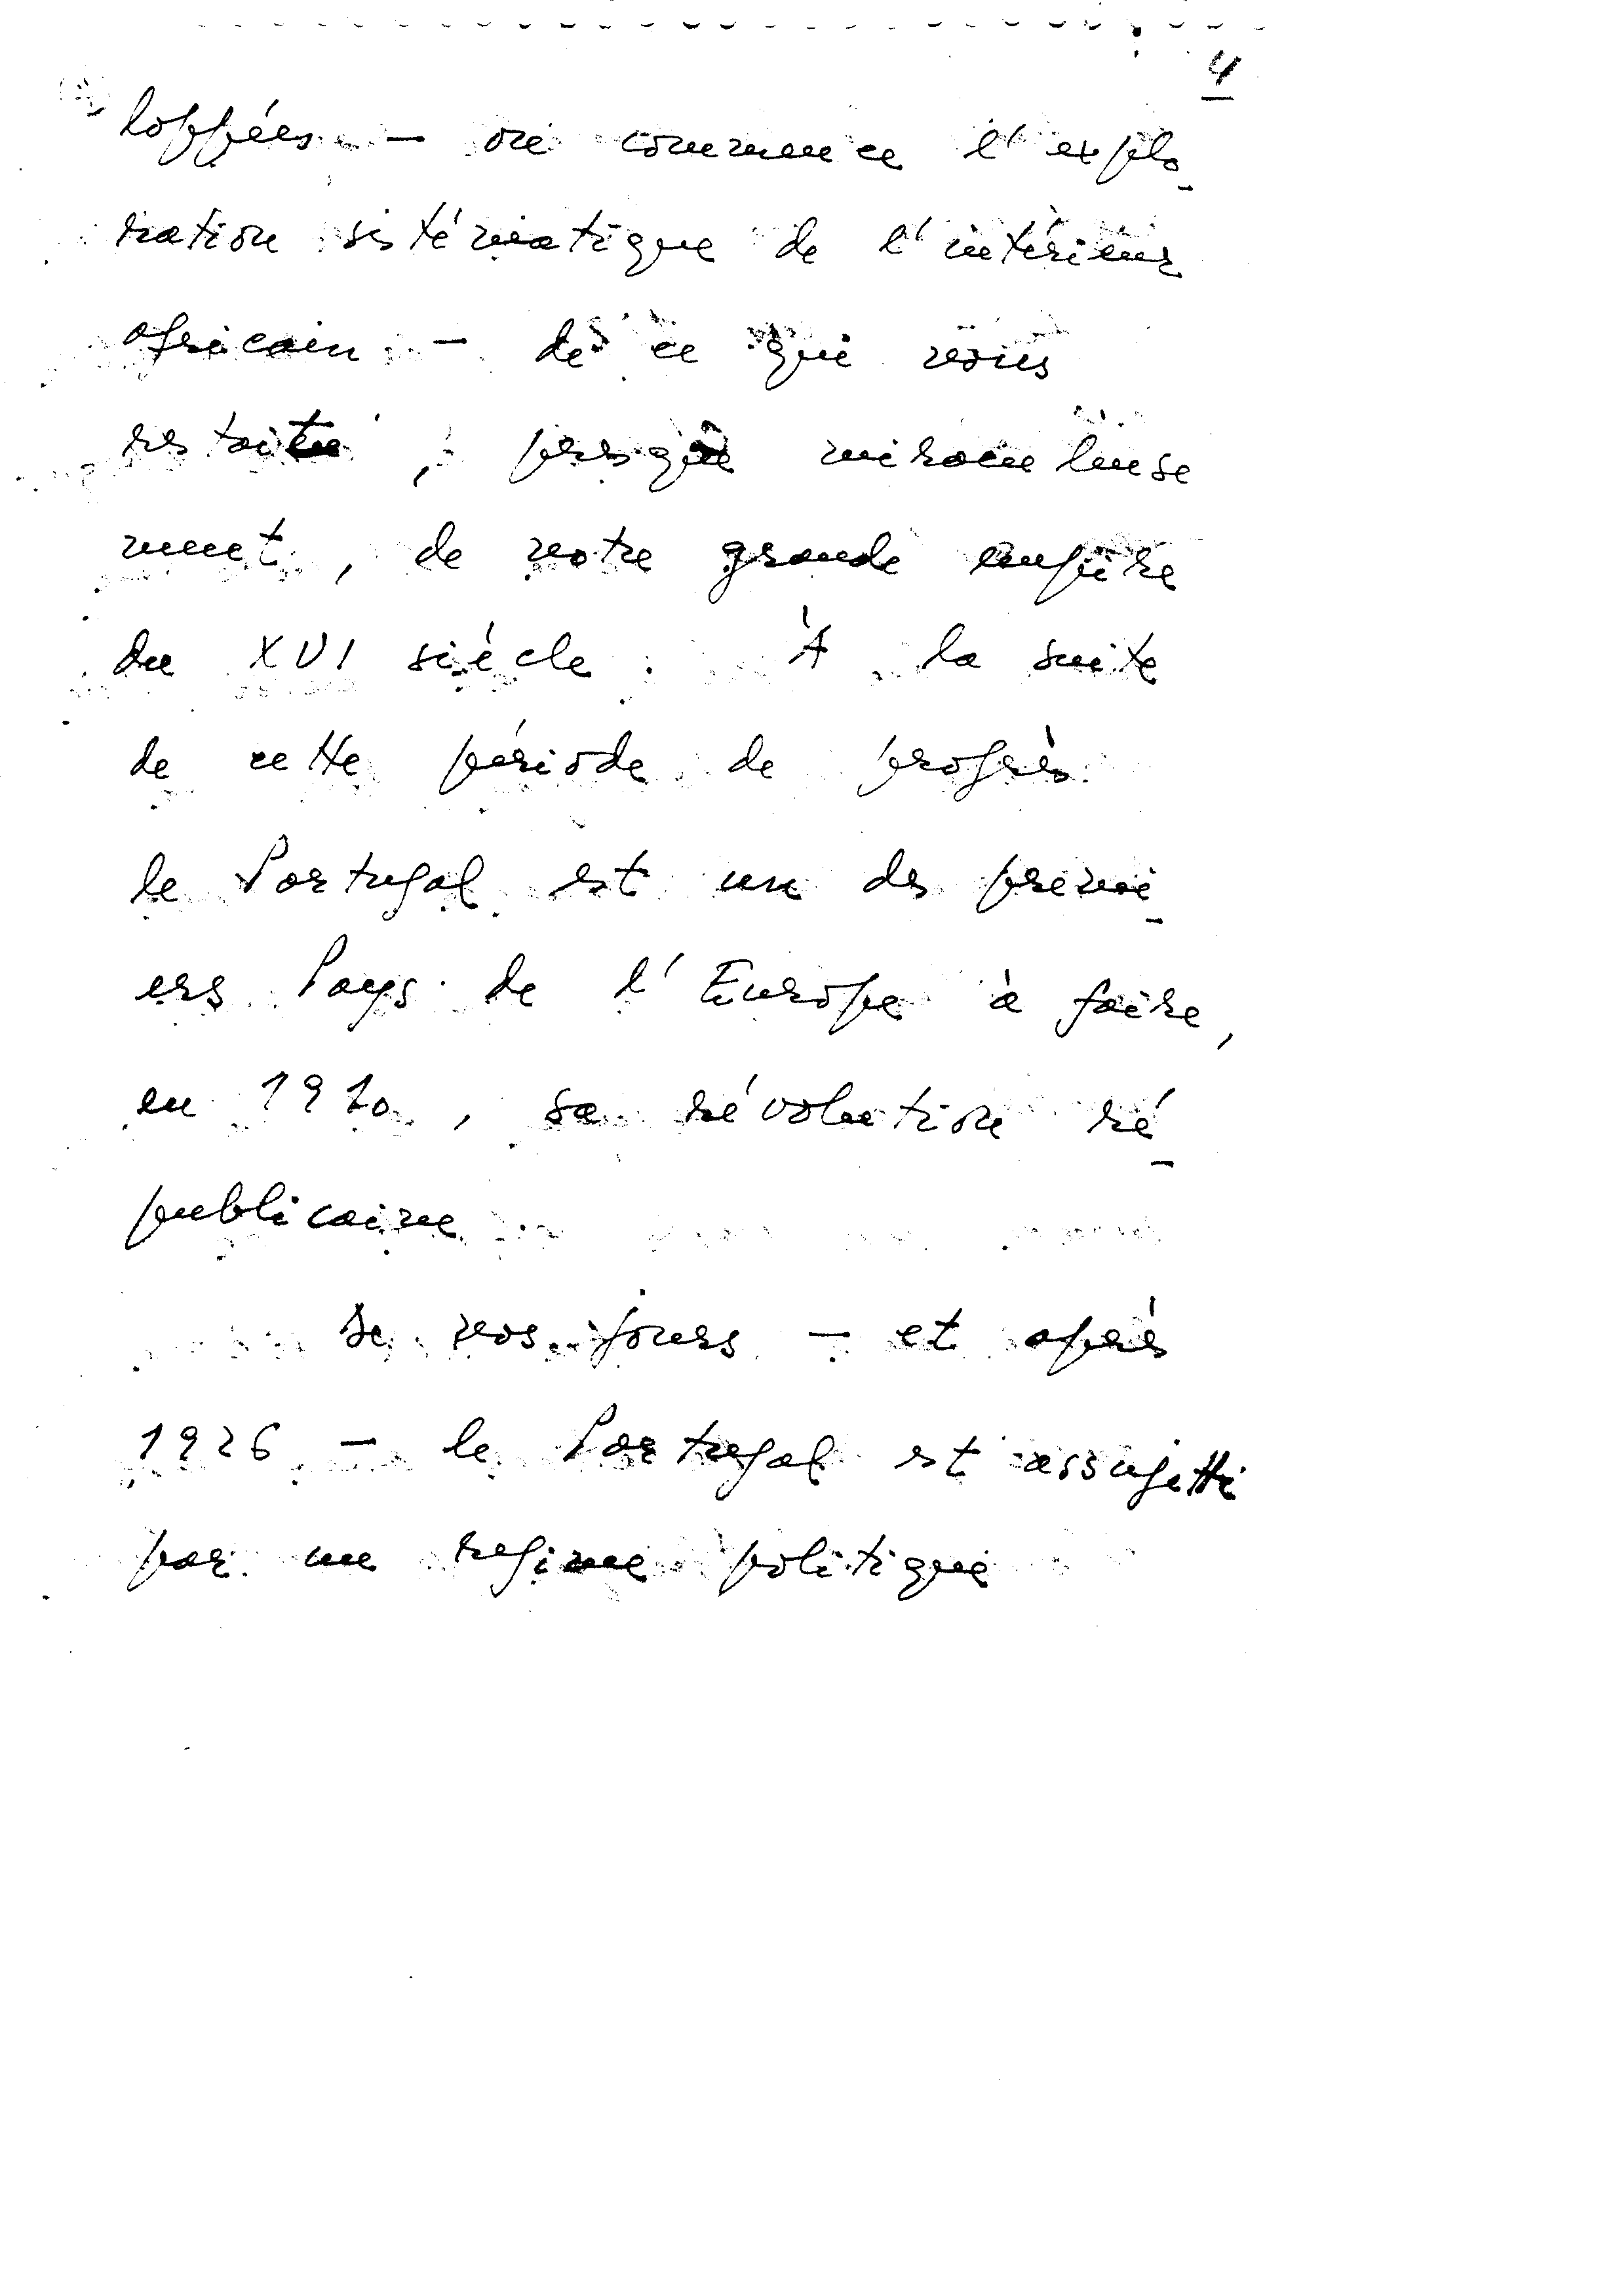 4
loppées — on commence l'explo-
ration sistématique de l'intérieur
africain — de ce qui nous
restait, presque miraculeuse
ment, de notre grande empire
du XVI siécle. À la suite
de cette période de progrès
le Portugal est un des premi-
ers Pays de l'Europe à faire,
en 1910, sa révolution ré-
publicaine
De nos jours — et après
1926 — le Portugal est assujetti
par un regime politique